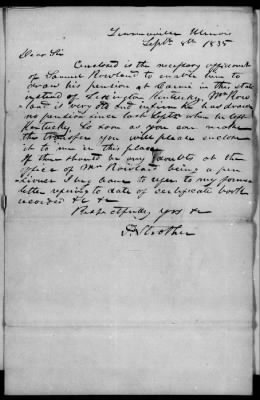 Sept 8th 1835
Dear Sir
Enclosed is the necessary affidavit
of Samuel Rowland to enable him to
draw his pension at Carmi in this state
instead of Lexington Kentucky. Mr Row
land is very old and infirm he has drawn
no pension since last Sept when he left
Kentucky. So soon as you can make
the transfer you will please enclose
it to me in this place
If there should be any doubts at the
office of Mr Rowland being a pen
sioner I beg leave to refer to my former
letter refering to date of certificate book
recorded &c &c
Respectfully yours &c
Strother